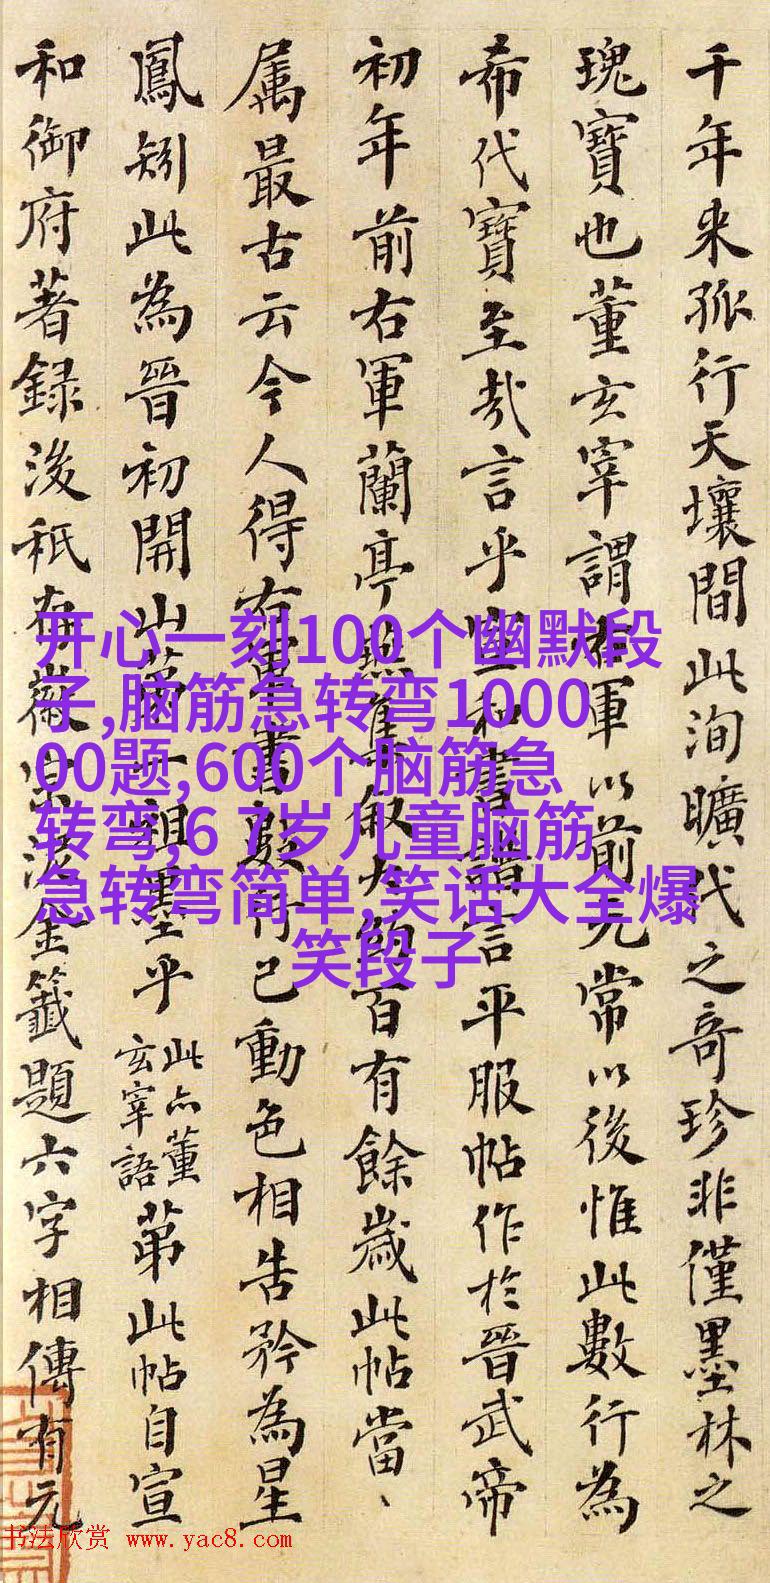 千年来孤行天壤間此洵曠代之奇珍非僅墨林之
瑰寶也董玄宰謂右軍以前元常以後惟此數行為
希代寶至哉言乎和書譜言平服帖作於晉武帝
初年前右軍蘭亭燕集敘大約百有餘歲此帖當、
属最古云今人得右軍書數行已動色相告矜為星
鳳矧此為晉初開山第一祖墨乎
此亦董
玄宰語
第此帖自宣
和御府著録後祇有徽宗泥金籤題六字相傳有元
开心一刻100个幽默段
子,脑筋急转弯1000
00题,600个脑筋急
转弯,6 7岁儿童脑筋
急转弯简单,笑话大全爆
笑段子
书法欣赏 www.yac8.com